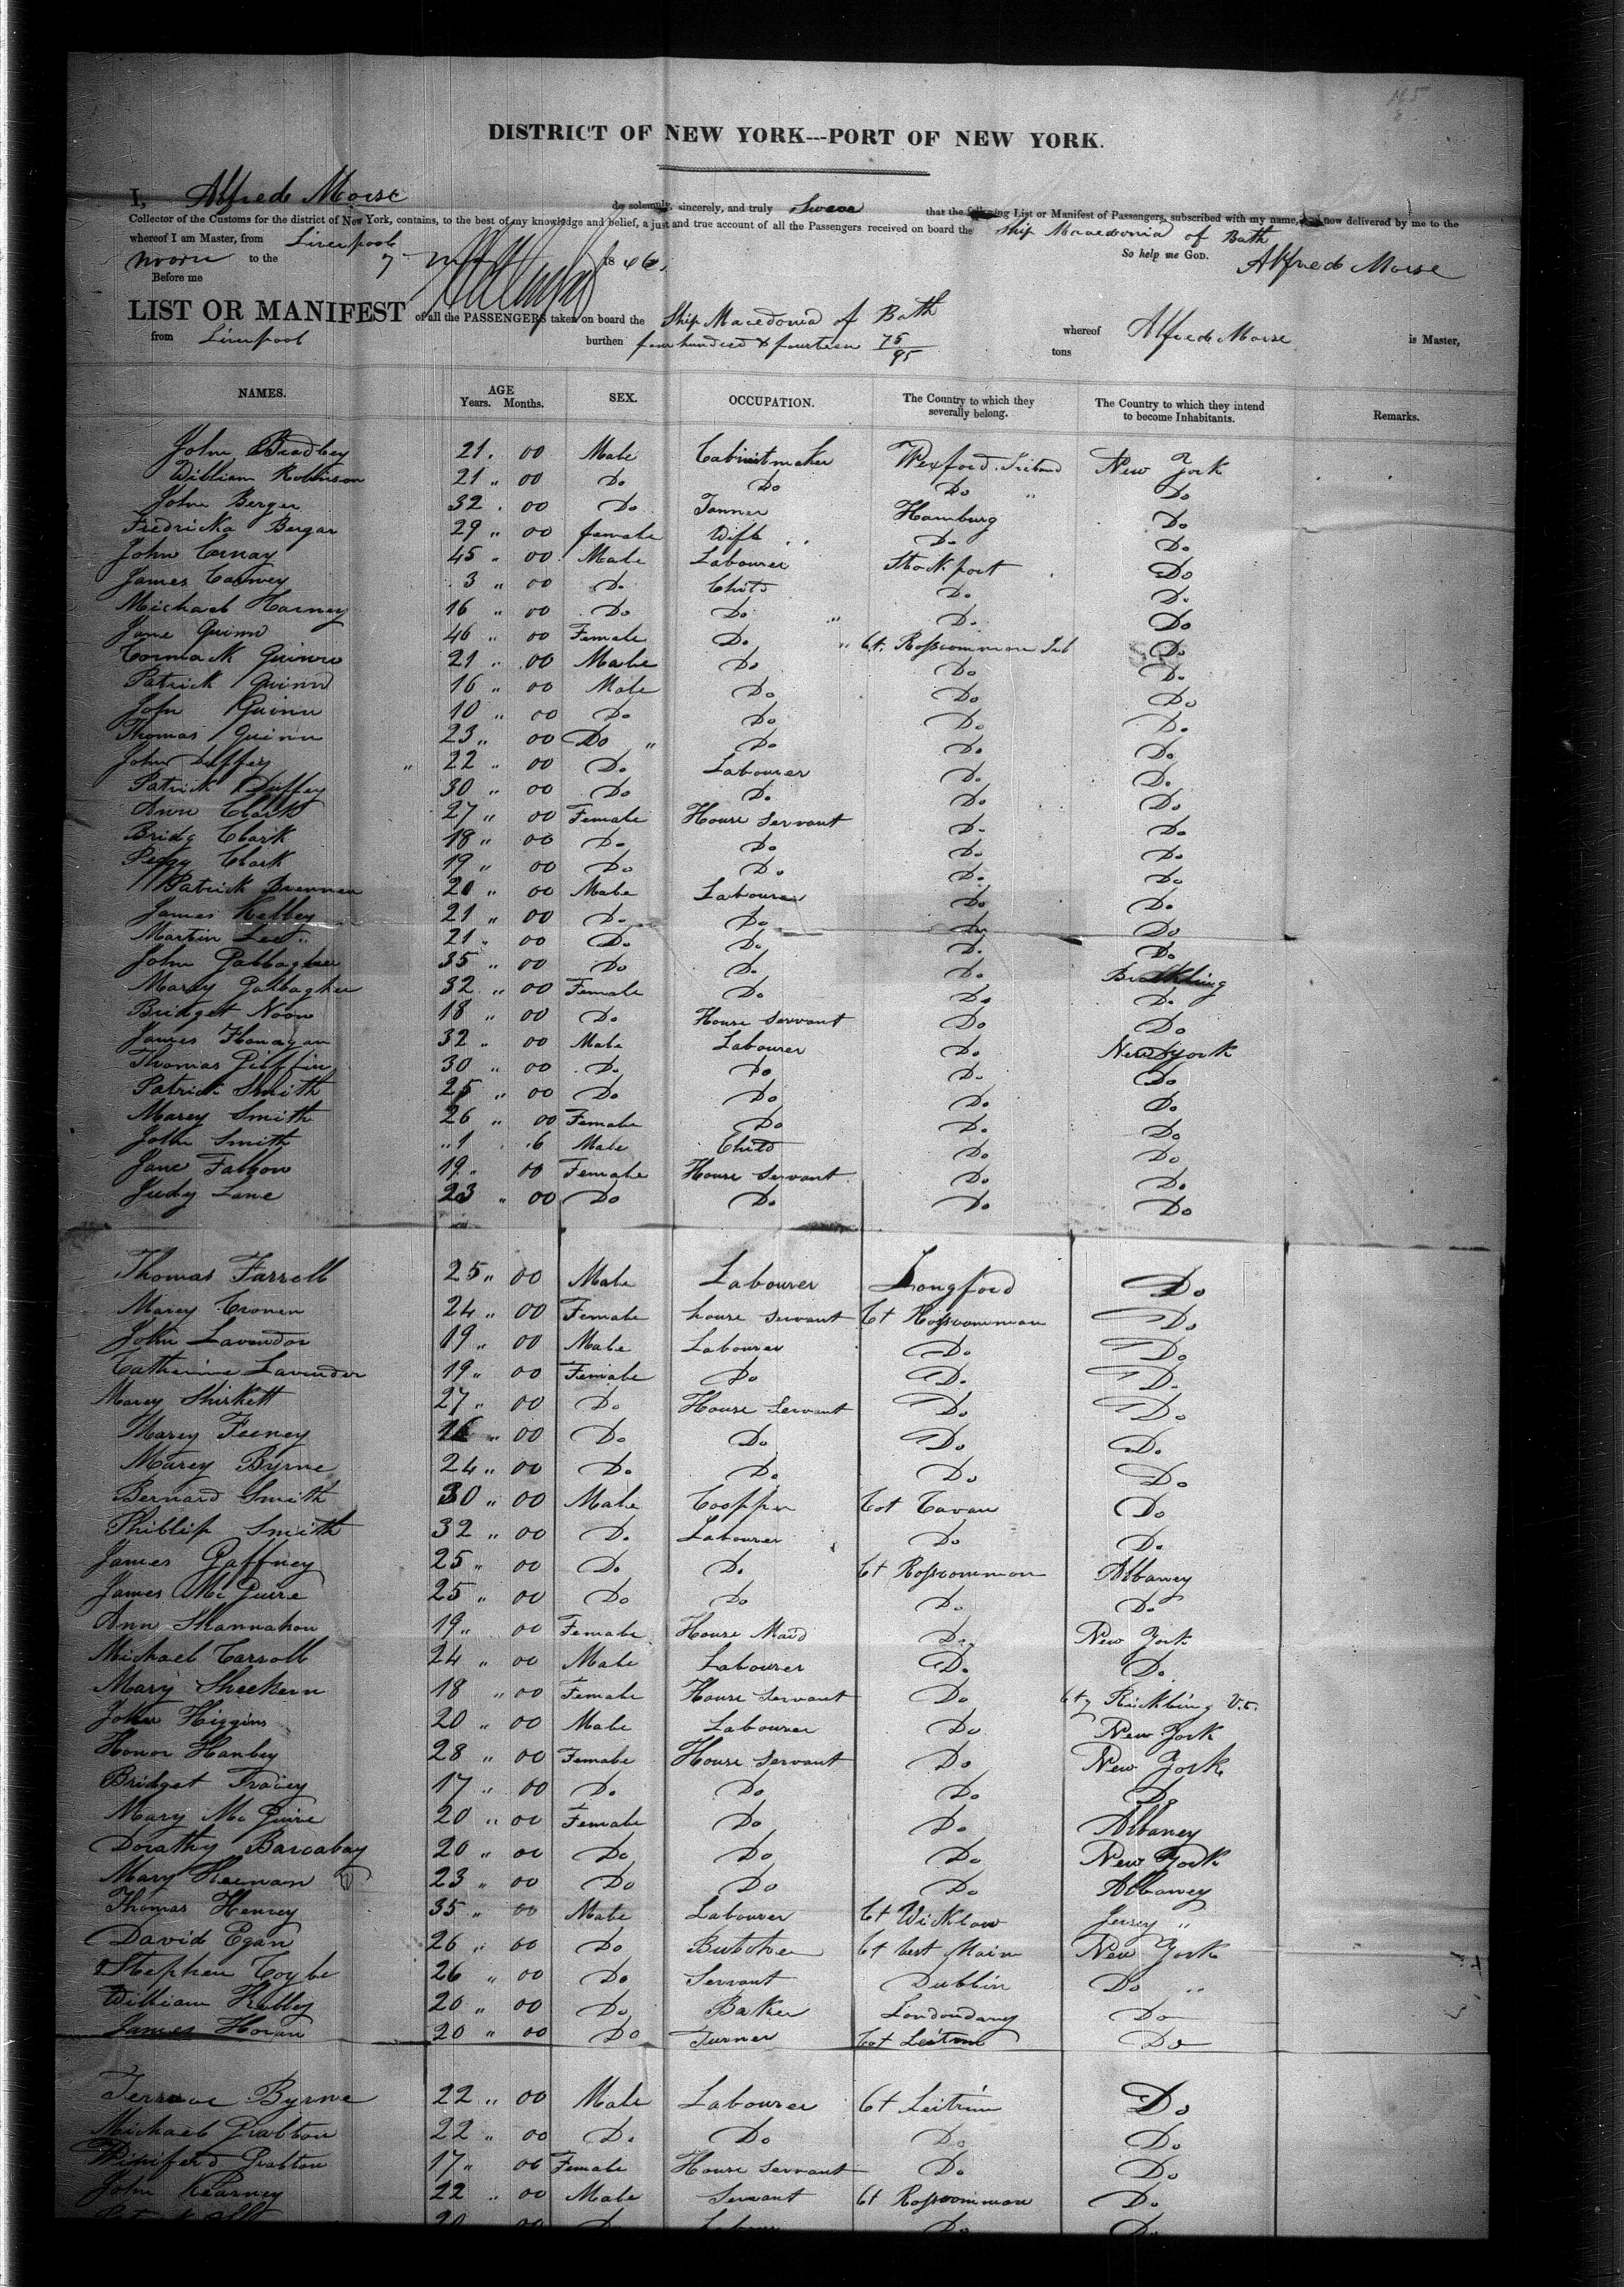 DISTRICT OF NEW YORK---PORT OF NEW YORK.
I, Alfred Morse do solemnly, sincerely, and truly Swear that the following List or Manifest of Passengers, subscribed with my name, and now delivered by me to the
Collector of the Customs for the district of New York, contains, to the best of my knowledge and belief, a just and true account of all the Passengers received on board the Ship Macedonia of Bath
whereof I am Master, from Liverpool So help me GOD. Alfred Morse
to the 7 1846.
Before me
LIST OR MANIFEST of all the PASSENGERS taken on board the Ship Macedonia of Bath whereof Alfred Morse is Master,
from Liverpool burthen four hundred & fourteen 75/95 tons
NAMES. AGE Years. Months. SEX. OCCUPATION. The Country to which they severally belong. The Country to which they intend to become Inhabitants. Remarks.
John Bradley 21 . 00 Male Cabinitmaker Wexford Ireland New York
William Robinson 21 " 00 Do Do Do " Do
John Berger 32 . 00 Do Tanner Hamburg Do
Fredricka Bergar 29 " 00 female Wife Do Do
John 45 " 00 Male Labourer Stockport Do
James 3 " 00 Do Child Do Do
Michael Harney 16 " 00 Do Do " Do Do
Jane Quinn 46 " 00 Female Do " Ct. Rosscommon Do
Cormack Quinn 21 " 00 Male Do Do Do
Patrick Quinn 16 " 00 Male Do Do Do
John Quinn 10 " 00 Do Do Do Do
Thomas Quinn 23 " 00 Do " Do Do Do
John Duffey " 22 " 00 Do Labourer Do Do
Patrick Duffey 30 " 00 Do Do Do Do
Ann Clark 27 " 00 Female House Servant Do Do
Bridg Clark 18 " 00 Do Do Do Do
Peggy Clark 19 " 00 Do Do Do Do
Patrick Brennan 20 " 00 Male Labourer Do Do
James Kelley 21 " 00 Do Do Do Do
Martin Lee 21 " 00 Do Do Do Do
John Gallagher 35 " 00 Do Do Do
Marey Gallagher 32 " 00 Female Do Do Do
Bridget Noon 18 " 00 Do House Servant Do Do
James Flanagan 32 " 00 Male Labourer Do New York
Thomas 30 " 00 Do Do Do Do
Patrick Smith 25 " 00 Do Do Do Do
Marey Smith 26 " 00 Female Do Do Do
John Smith 1 6 Male Child Do Do
Jane Fallon 19 " 00 Female House Servant Do Do
Judy Lane 23 " 00 Do Do Do Do
Thomas Farrell 25 " 00 Male Labourer Longford Do
Marey Cronen 24 " 00 Female house servant Ct Rosscommon Do
John Lavender 19 " 00 Male Labourer Do Do
Catherine Lavender 19 " 00 Female Do Do Do
Marey Shirkett 27 " 00 Do House Servant Do Do
Marey Feeney " 00 Do Do Do Do
Marey Byrne 24 " 00 Do Do Do Do
Bernard Smith 30 " 00 Male Cooper Cot Cavan Do
Phillip Smith 32 " 00 Do Labourer Do Do
James Gaffney 25 " 00 Do Do Ct Rosscommon Albaney
James McGuire 25 " 00 Do Do Do Do
Ann Shannahon 19 " 00 Female House Maid Do New York
Michael Carroll 24 " 00 Male Labourer Do Do
Mary Sheekern 18 " 00 Female House Servant Do
John Higgins 20 " 00 Male Labourer Do New York
Honor Hanley 28 " 00 Female House Servant Do New York
Bridget Tracey 17 " 00 Do Do Do Do
Mary McGuire 20 " 00 Female Do Do Albaney
Dorathy 20 " 00 Do Do Do New York
Mary Keenan 23 " 00 Do Do Do Albaney
Thomas Henrey 35 " 00 Male Labourer Ct Wicklow Jersey "
David Egan 26 " 00 Do Butcher Ct New York
Stephen Coyle 26 " 00 Do Servant Dublin Do "
William Kelley 20 " 00 Do Baker Londondary Do
James Horan 20 " 00 Do Turner Cot Leitrim Do
Terrance Byrne 22 " 00 Male Labourer Ct Leitrim Do
Michael Gralton 22 " 00 Do Do Do Do
Winiferd Gralton 17 " 00 Female House Servant Do Do
John Kearney 22 " 00 Male Servant Ct Rosscommon Do
20 00 Do Labour Do Do